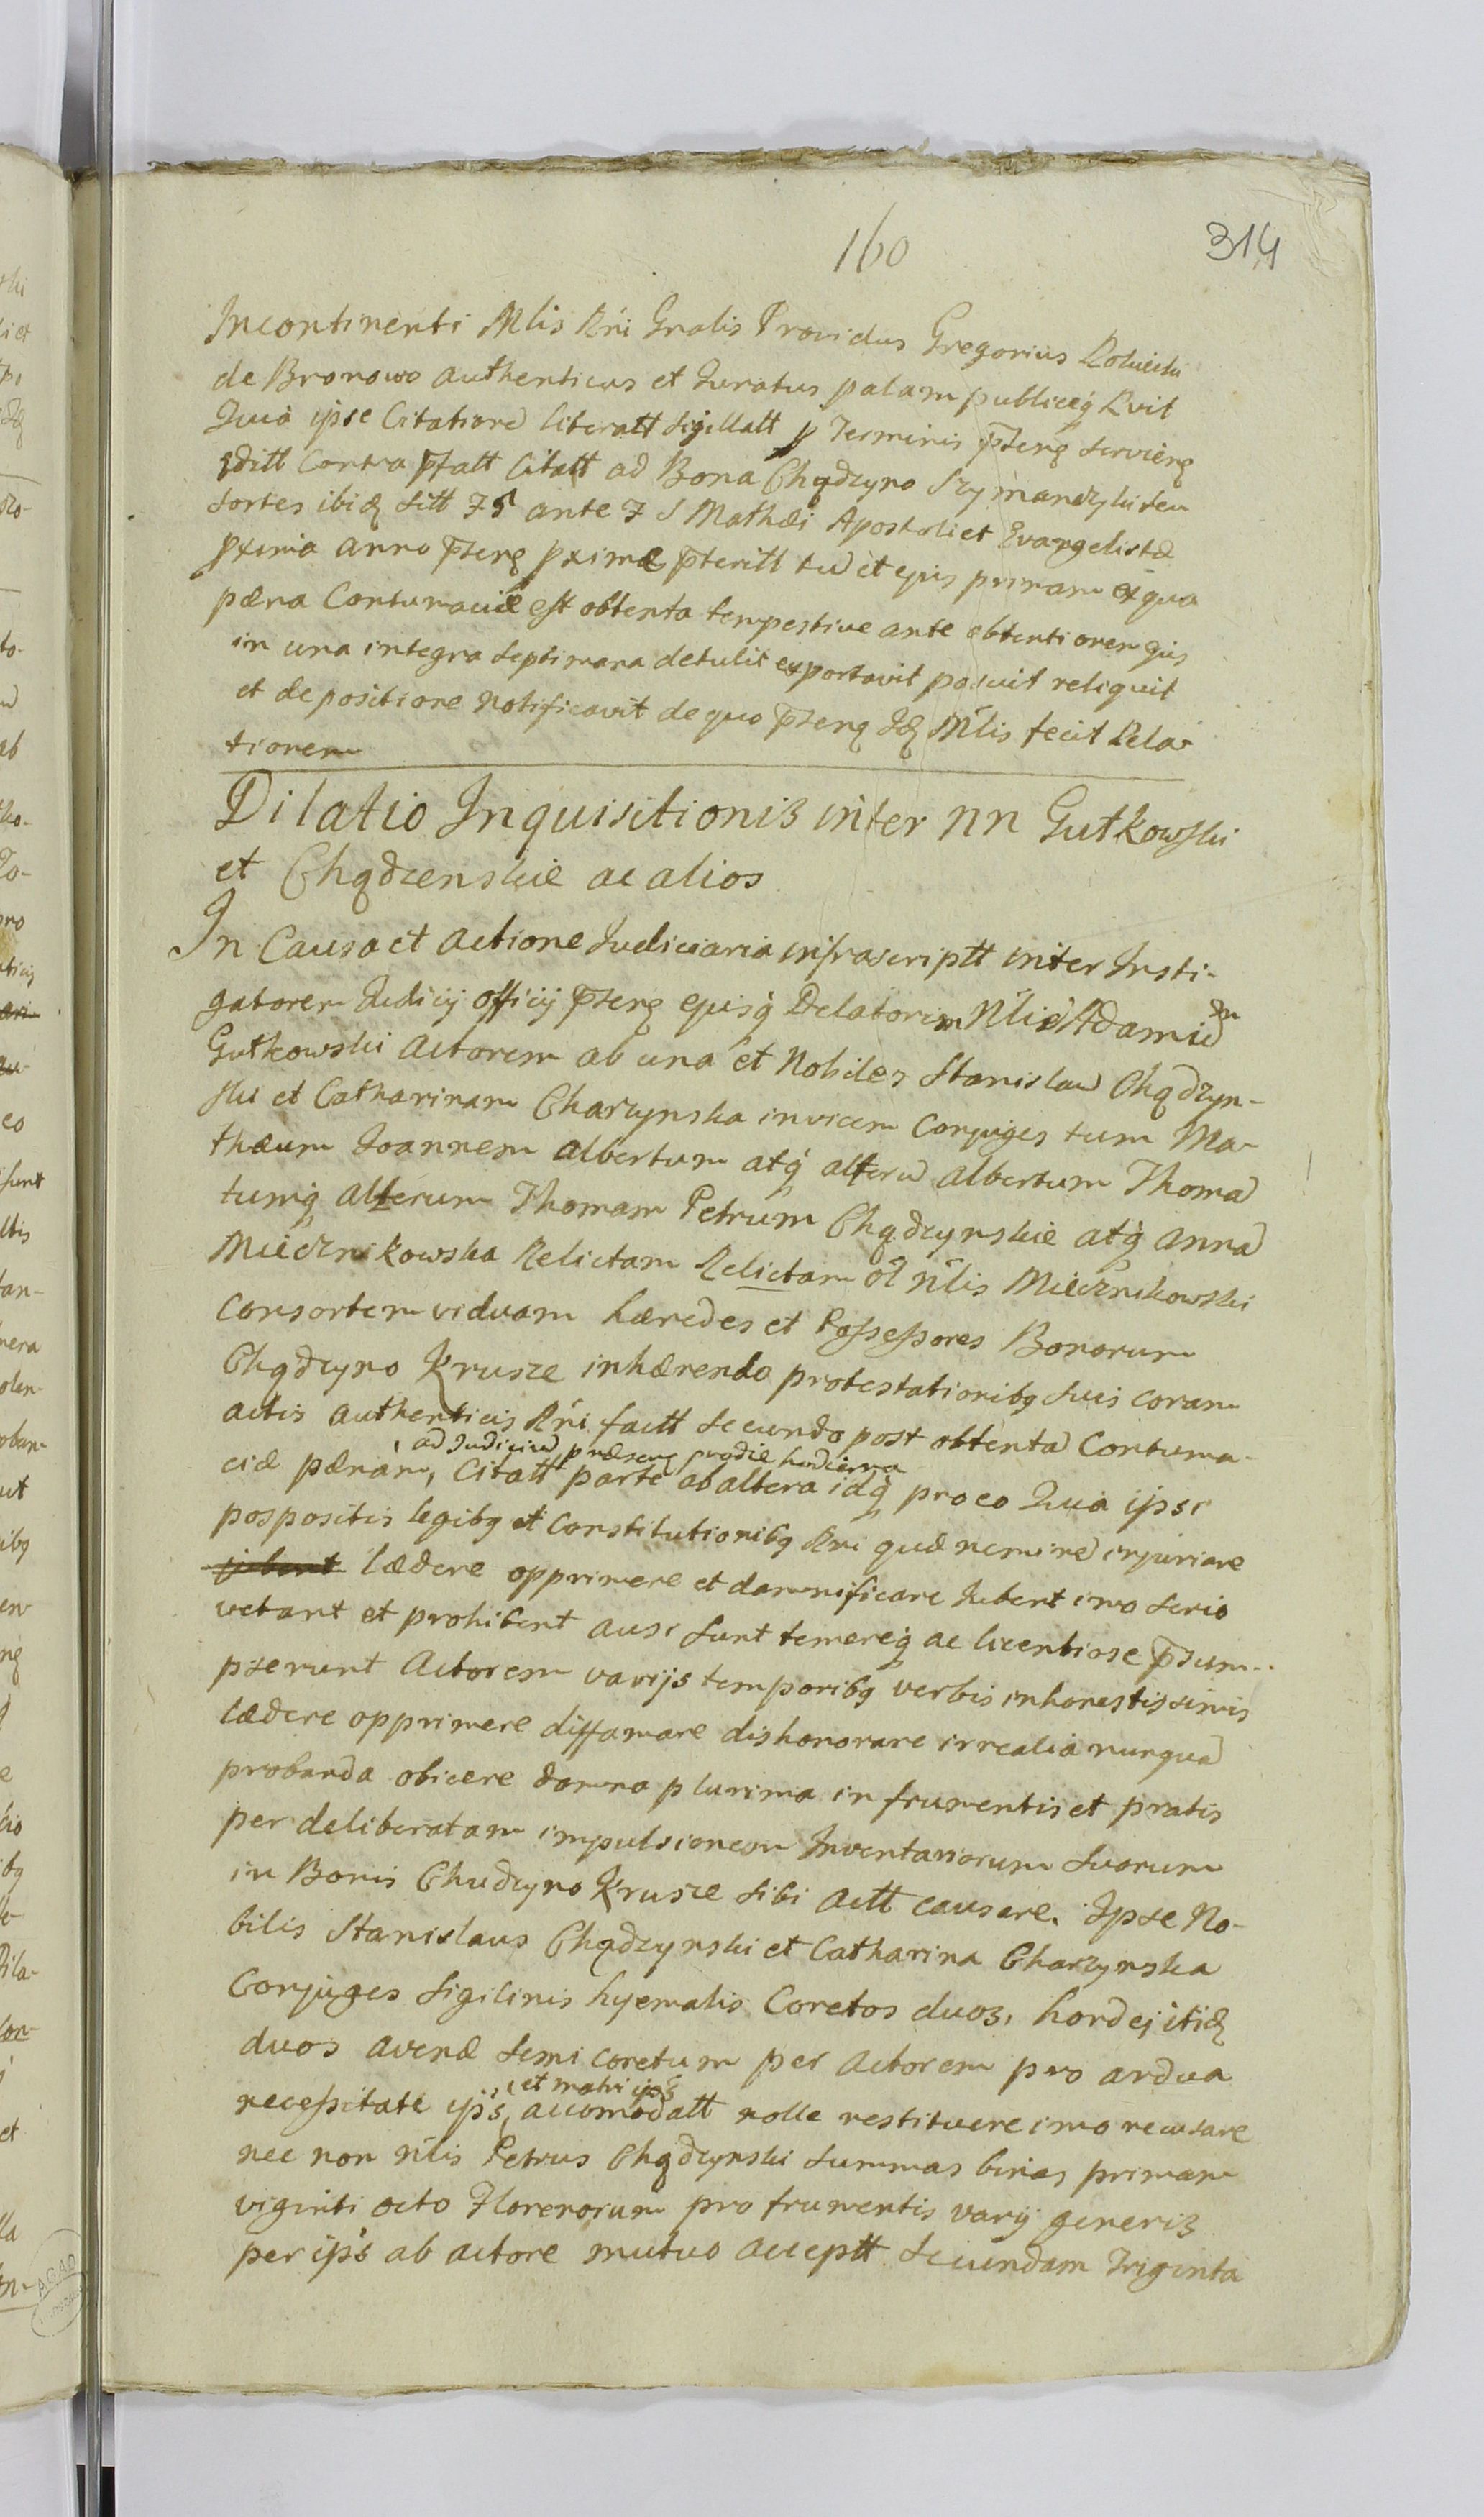 160
314
Incontinenti Mlis Rńi Gnalis Providus Gregorius
de Bronowo authenticus et Juratus palam publiceq Rvit
Quia ipse Citationē literatt sigillatt p Terminis p̄senq servienq
editt contra p̄fatt Citatt ad Bona Chądzyno Szymanczyki seu
sortes ibidq sitt 75 ante F S Mathæi Apostoli et Evangelistæ
pxima anno p̄senq pximæ p̄teritt tū et ejus primam ex qua
pæna Contumaciæ est obtenta tempestive ante obtentionem ejus
in una integra septimana detulit exportavit posuit reliquit
et de positione notificavit de quo p̄senq Idq Mlis fecit Rela-
tionem
Dilatio Inquisitionis inter nn Gutkowski
et Chądzenskie ac alios
In Causa et actione Judiciaria infrascriptt inter Insti-
gatorem Judicij officij p̄senq ejusq Delatorem Nlis Adamū
Gutkowski actorem ab una et Nobiles Stanislaū Chądzyn-
ski et Catharinam Charzynska invicem Conjuges tum Ma-
thæum Joannem albertum atq alterū albertum Thomā
tumq alterum Thomam Petrum Chądzynskie atq annā
Miecznikowska Relictam Relictam ol nlis Miecznikowski
consortem viduam hæredes et Possessores Bonorum
Chądzyno Krusze inhærendo protestationibq suis coram
actis authenticis Rńi factt secundo post obtentā Contuma-
ad Judiciū præsens pro die hodierna
ciæ pænam, Citatt parte ab altera idq pro eo Quia ipsi
pospositis legibq et Constitutionibq Rni quæ neminē injuriare
jubent lædere opprimere et damnificare Jubent imo serio
vetant et prohibent ausi sunt temereq ac licentiose p̄sum-
pserunt Actorem varijs temporibq verbis inhonestissimis
lædere opprimere diffamare dishonorare irrealia nunquā
probanda obicere damna plurima in frumentis et pratis
per deliberatam impulsionem Inventariorum suorum
in Bonis Chudzyno Krusze sibi actt causare. Ipse No-
bilis Stanislaus Chądzynski et Catharina Charzynska
Conjuges sigilinis hyemalis Coretos duos, hordej itidq
duos avenæ semi coretum per actorem pro ardua
et matri ips
necessitate ips, accomodatt nolle restituere imo recusare
nec non nlis Petrus Chądzynski summas binas primam
viginti octo Florenorum pro frumentis varij generis
per ips ab actore mutuo acceptt secundam Triginta